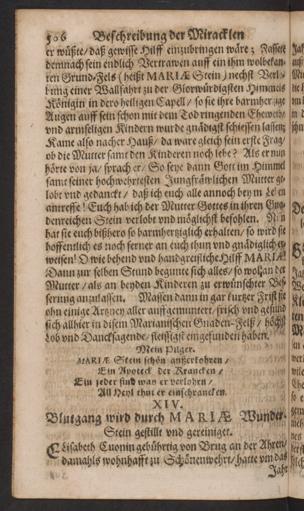 506 Beschreibung der Miracklen
er wüßte/ daß gewisse Hilff einzubringen wäre; Fassete
demnach sein endlich Vertrawen auff ein ihm wolbekan-
ten Grund-Fels (heißt MARIÆ Stein) nechst Verlo-
bung einer Wallfahrt zu der Glorwürdigsten Himmels
Königin in dero heiligen Capell/ so sie ihre barmhertzige
Augen auff sein schon mit dem Tod ringenden Eheweib
und armseligen Kindern wurde gnädigst schiessen lassen;
Kame also nacher Hauß/ da ware gleich sein erste Frag/
ob die Mutter samt den Kinderen noch lebe? Als er nun
hörte von ja/ sprach er/ So seye dann Gott im Himmel
samt seiner hochwehrtesten Jungfräwlichen Mutter ge-
lobt und gedanckt/ daß ich euch alle annoch bey m Leben
antreffe! Euch hab ich der Mutter Gottes in ihren Gna-
denreichen Stein verlobt und möglichst befohlen. Nun
hat sie euch bißhero so barmhertziglich erhalten/ so wird sie
hoffentlich es noch ferner an euch thun und gnädiglich er-
weisen! O wie behend und handgreiffliche Hilff MARIÆ!
Dann zur selben Stund begunte sich alles/ so wol an der
Mutter/ als an beyden Kinderen zu erwünschter Bes-
serung anzulassen. Massen dann in gar kurtzer Frist sie
ohn einige Artzney aller auffgemuntert/ frisch und gesund
sich allhier in disem Marianischen Gnaden-Felß/ höchst
Lob und Dancksagende/ fleissigst eingefunden haben.
Mein Pilger.
MARIÆ Stein schön außerkohren/
Ein Apoteck der Krancken/
Ein jeder find was er verlohrn/
All Heyl thut er einschrancken.
XIV.
Blutgang wird durch MARIÆ Wunder-
Stein gestillt und gereiniget.
Elisabeth Cuonin gebührtig von Brug an der Ahren/
damahls wohnhafft zu Schönenwehrt/ hatte um das
Jahr